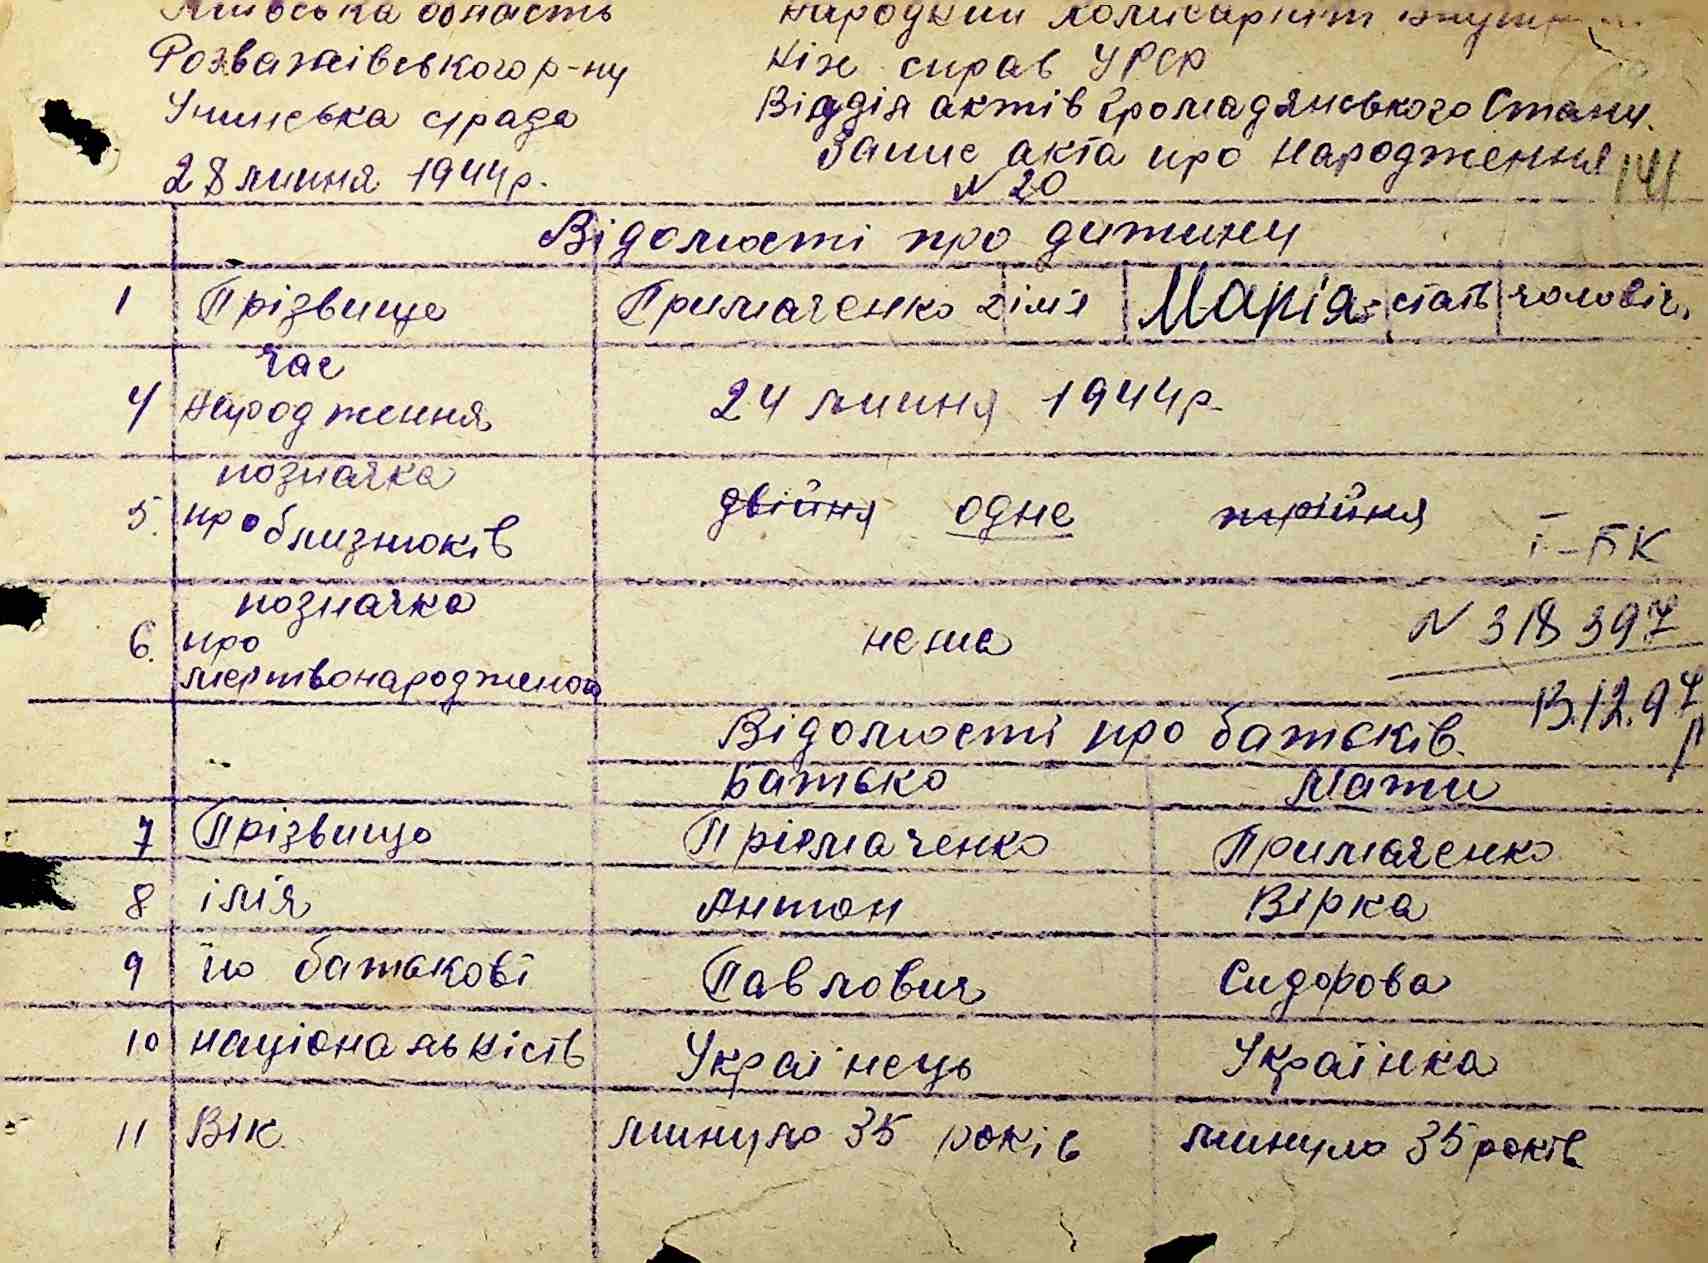 Київська область
Розважівського р-ну
сірада
28 липня 1944р.
Народний комісаріят внутр
ніх справ УРСР
Відділ актів громадянського Стану.
Запис акта про народження
N 20
141
Відомості про дитину
1 Прізвище Примаченко 2 імя Марія 3 стать чоловіч.
4 час народження 24 липня 1944р.
5. позначка про близнюків двійня одне трійня
І-БК
6. позначка про мертвонародженого нема
N 318397
13.12.97
Відомості про батьків.
Батько Мати
7 Прізвище Приймаченко Примаченко
8 імія Антон Вірка
9 по батькові Павлович Сидорова
10 національність Українець Українка
11 Вік. минуло 35 років минуло 35 років